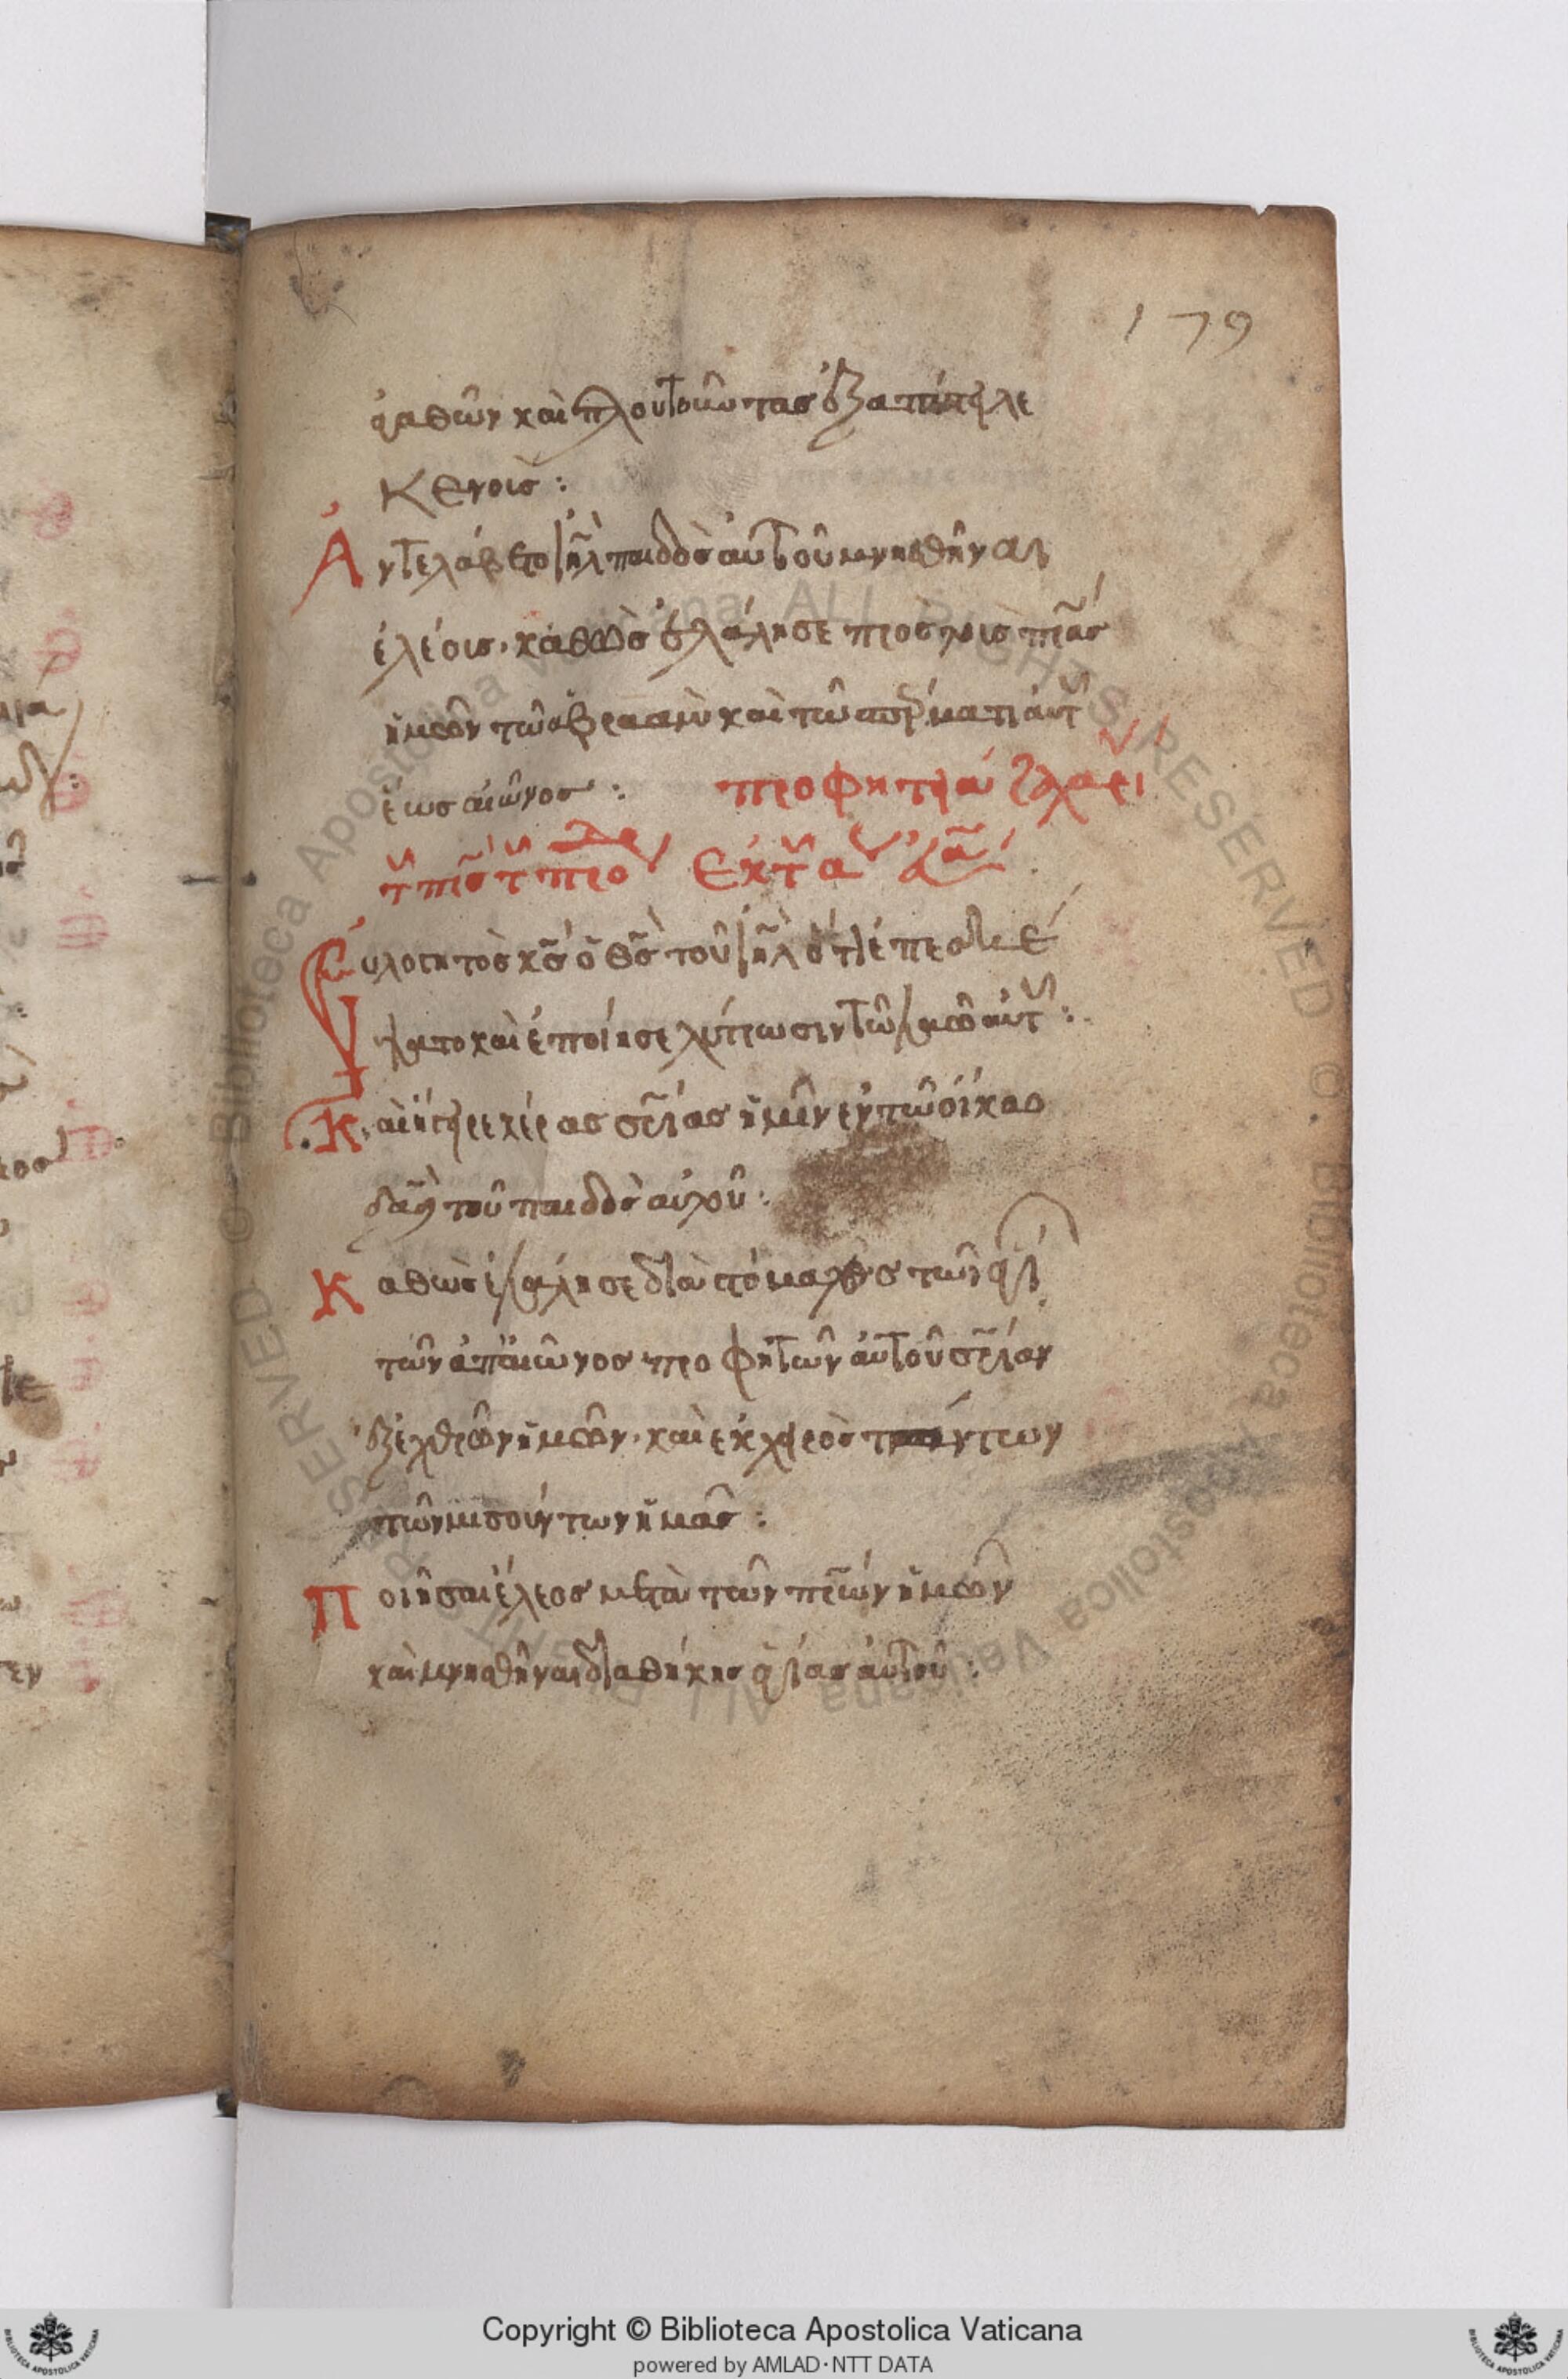 179
ἀγαθῶν καὶ πλουτοῦντας ἐξαπέστειλε
κενούς:
Ἀντελάβετο ἰηλ̃ παιδὸς αὐτοῦ μνησθῆναι
ἐλέους· καθὼς ἐλάλησε πρὸς τοὺς πρ̃ας
ἡμῶν τῶ ἀβραὰμ καὶ τῶ σπέρματι αὐτ
ἕως αἰῶνος:
Εὐλογητὸς κς̃ ὁ θς̃ τοῦ ἰηλ̃ ὅτι ἐπεσκέ
ψατο καὶ ἐποίησε λύτρωσιν τῶ λαῶ αὐτ:
Καὶ ἤγειρε κέρας σρ̃ίας ἡμῖν ἐν τῶ οἴκω
δαδ̃ τοῦ παιδὸς αὐτοῦ:
Καθὼς ἐλάλησε διὰ στόματος τῶν ἁγί
τῶν ἀπ' αἰῶνος προφητῶν αὐτοῦ σρ̃ίαν
ἐξ ἐχθρῶν ἡμῶν· καὶ ἐκ χειρὸς πάντων
τῶν μισούντων ἡμᾶς:
Ποιῆσαι ἔλεος μετὰ τῶν πρ̃ων ἡμῶν
καὶ μνησθῆναι διαθήκης ἁγίας αὐτοῦ:
Copyright © Biblioteca Apostolica Vaticana
powered by AMLAD·NTT DATA